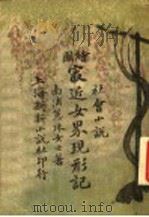 社會小說
繪圖
冣近女界現形記
南浦蕙珠女士著
上海新新小說社印行